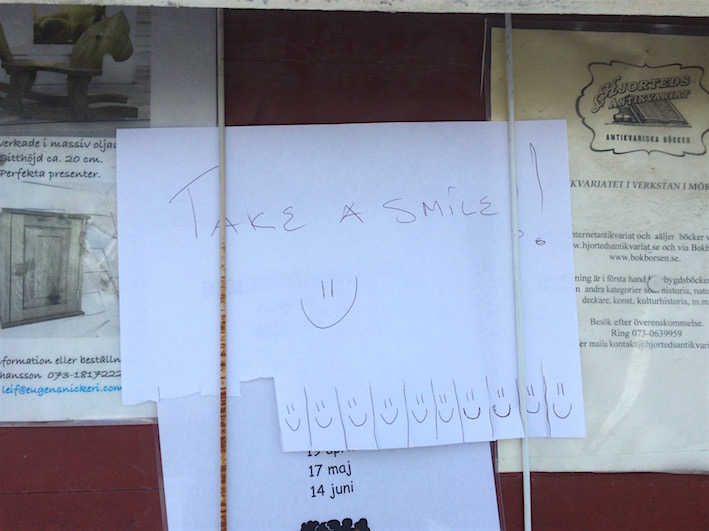 verkade i massiv oljad
Sitthöjd ca. 20 cm.
Perfekta presenter.
formation eller beställn
hansson 073-1817222
leif@eugensnickeri.com
TAKE A SMILE!!
19 apri
17 maj
14 juni
HJORTEDS
ANTIKVARIAT
ANTIKVARISKA BÖCKER
KVARIATET I VERKSTAN I MÖR
nternetantikvariat och säljer böcker v
w.hjortedsantikvariat.se och via Bokb
www.bokborsen.se.
ning är i första hand bygdsböcker
n andra kategorier som historia, natu
deckare, konst, kulturhistoria, m.m
Besök efter överenskommelse.
Ring 073-0639959
er maila kontakt@hjortedsantikvari